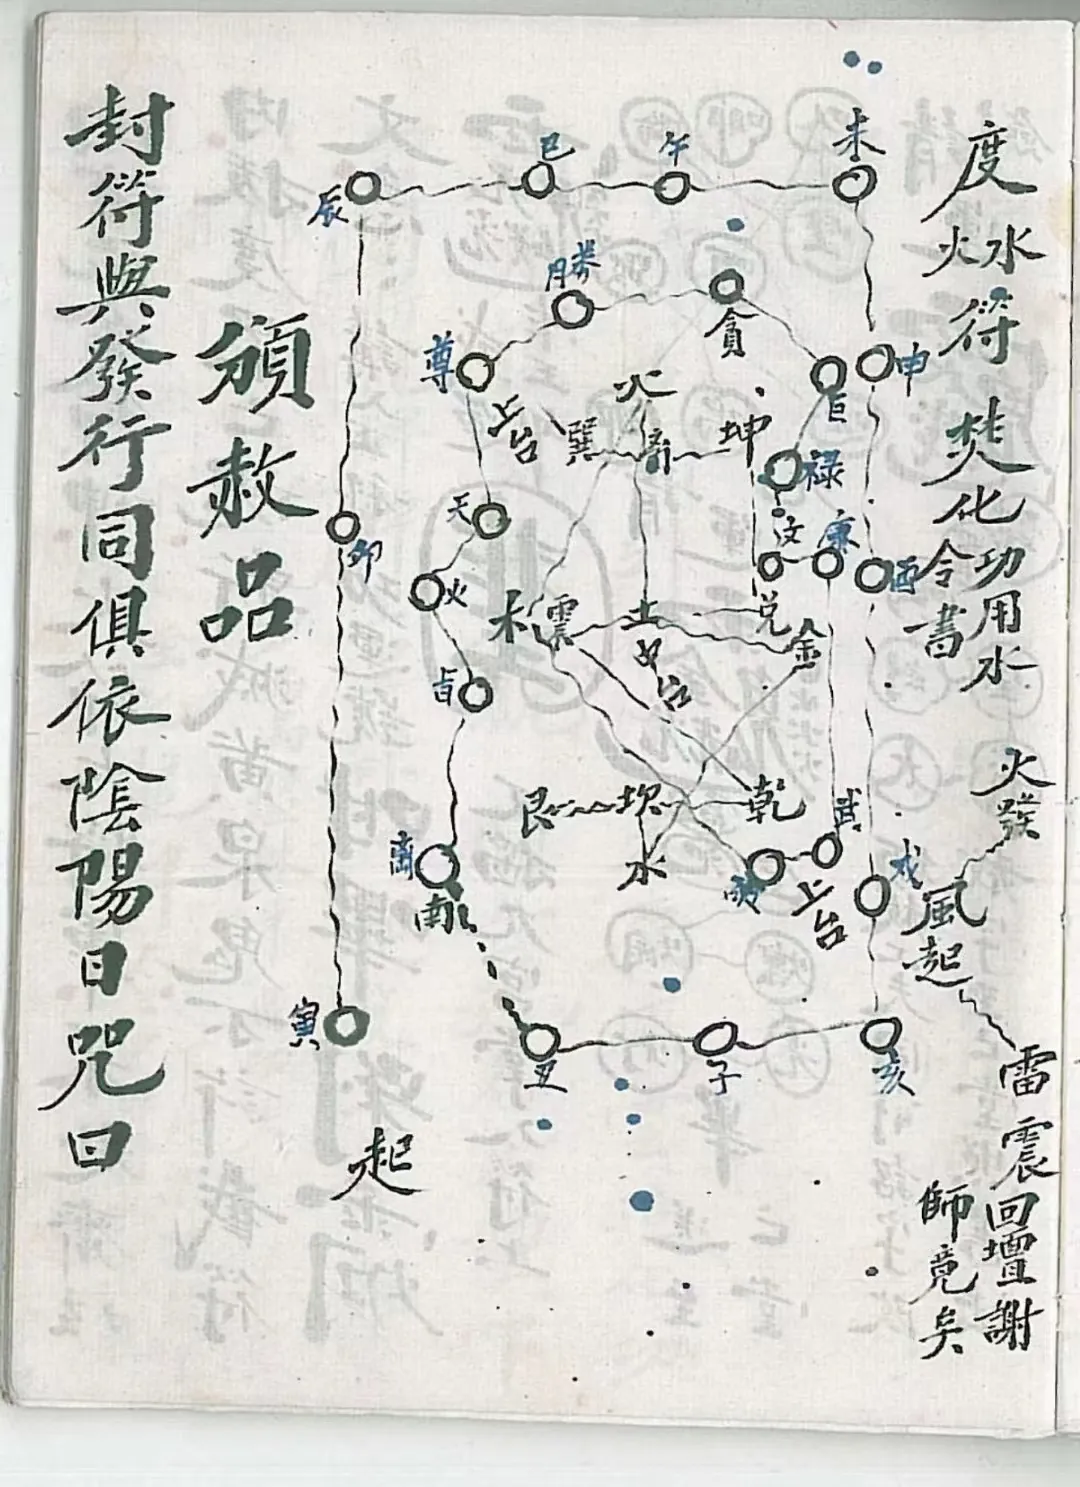 度
水火
符
焚化
功用水
令書
火發
風起
雷震
回壇謝
師竟矣
未
午
巳
辰
卯
寅
丑
子
亥
戌
酉
申
勝
尊
貪
禄
文
廉
武
天
火
南
上台
巽
火
坤
兑
木
震
土
金
艮
坎
乾
水
上台
起
頒赦品
封符與發行同俱依陰陽日咒曰